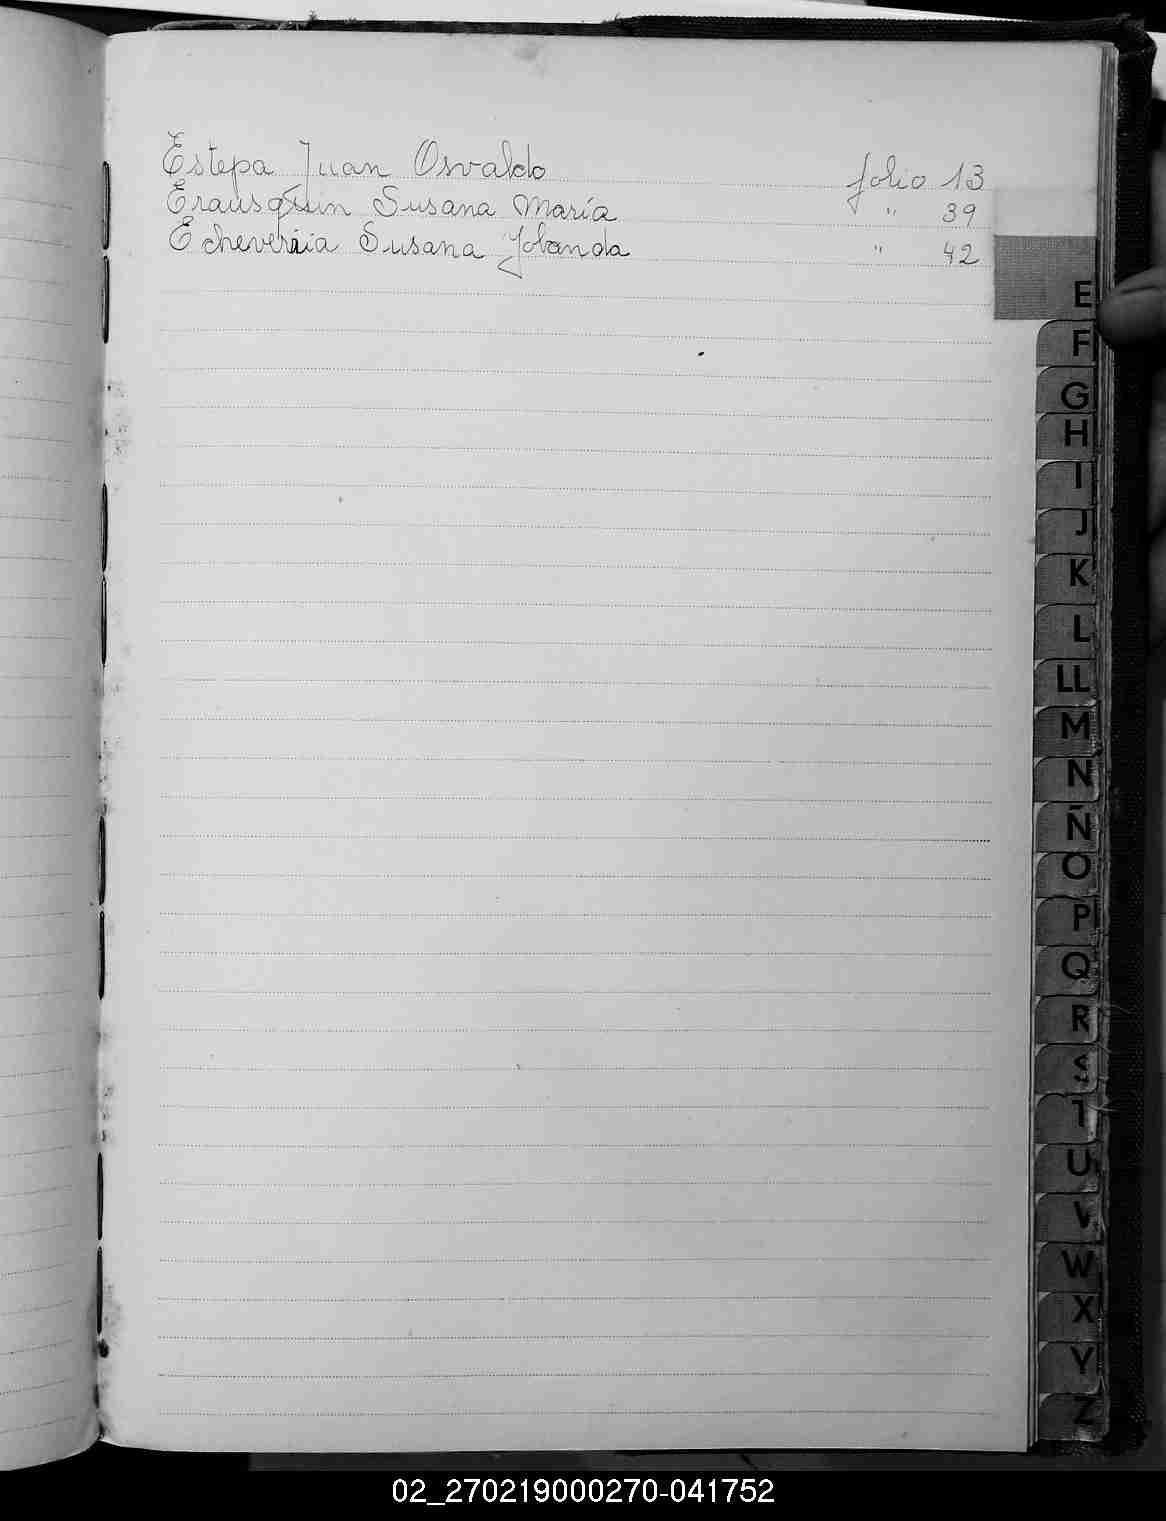 Estepa Juan Osvaldo folio 13
Erausquin Susana María " 39
Echeverria Susana Yolanda " 42
E
F
G
H
I
J
K
L
LL
M
N
Ñ
O
P
Q
R
S
T
U
V
W
X
Y
Z
02_270219000270-041752